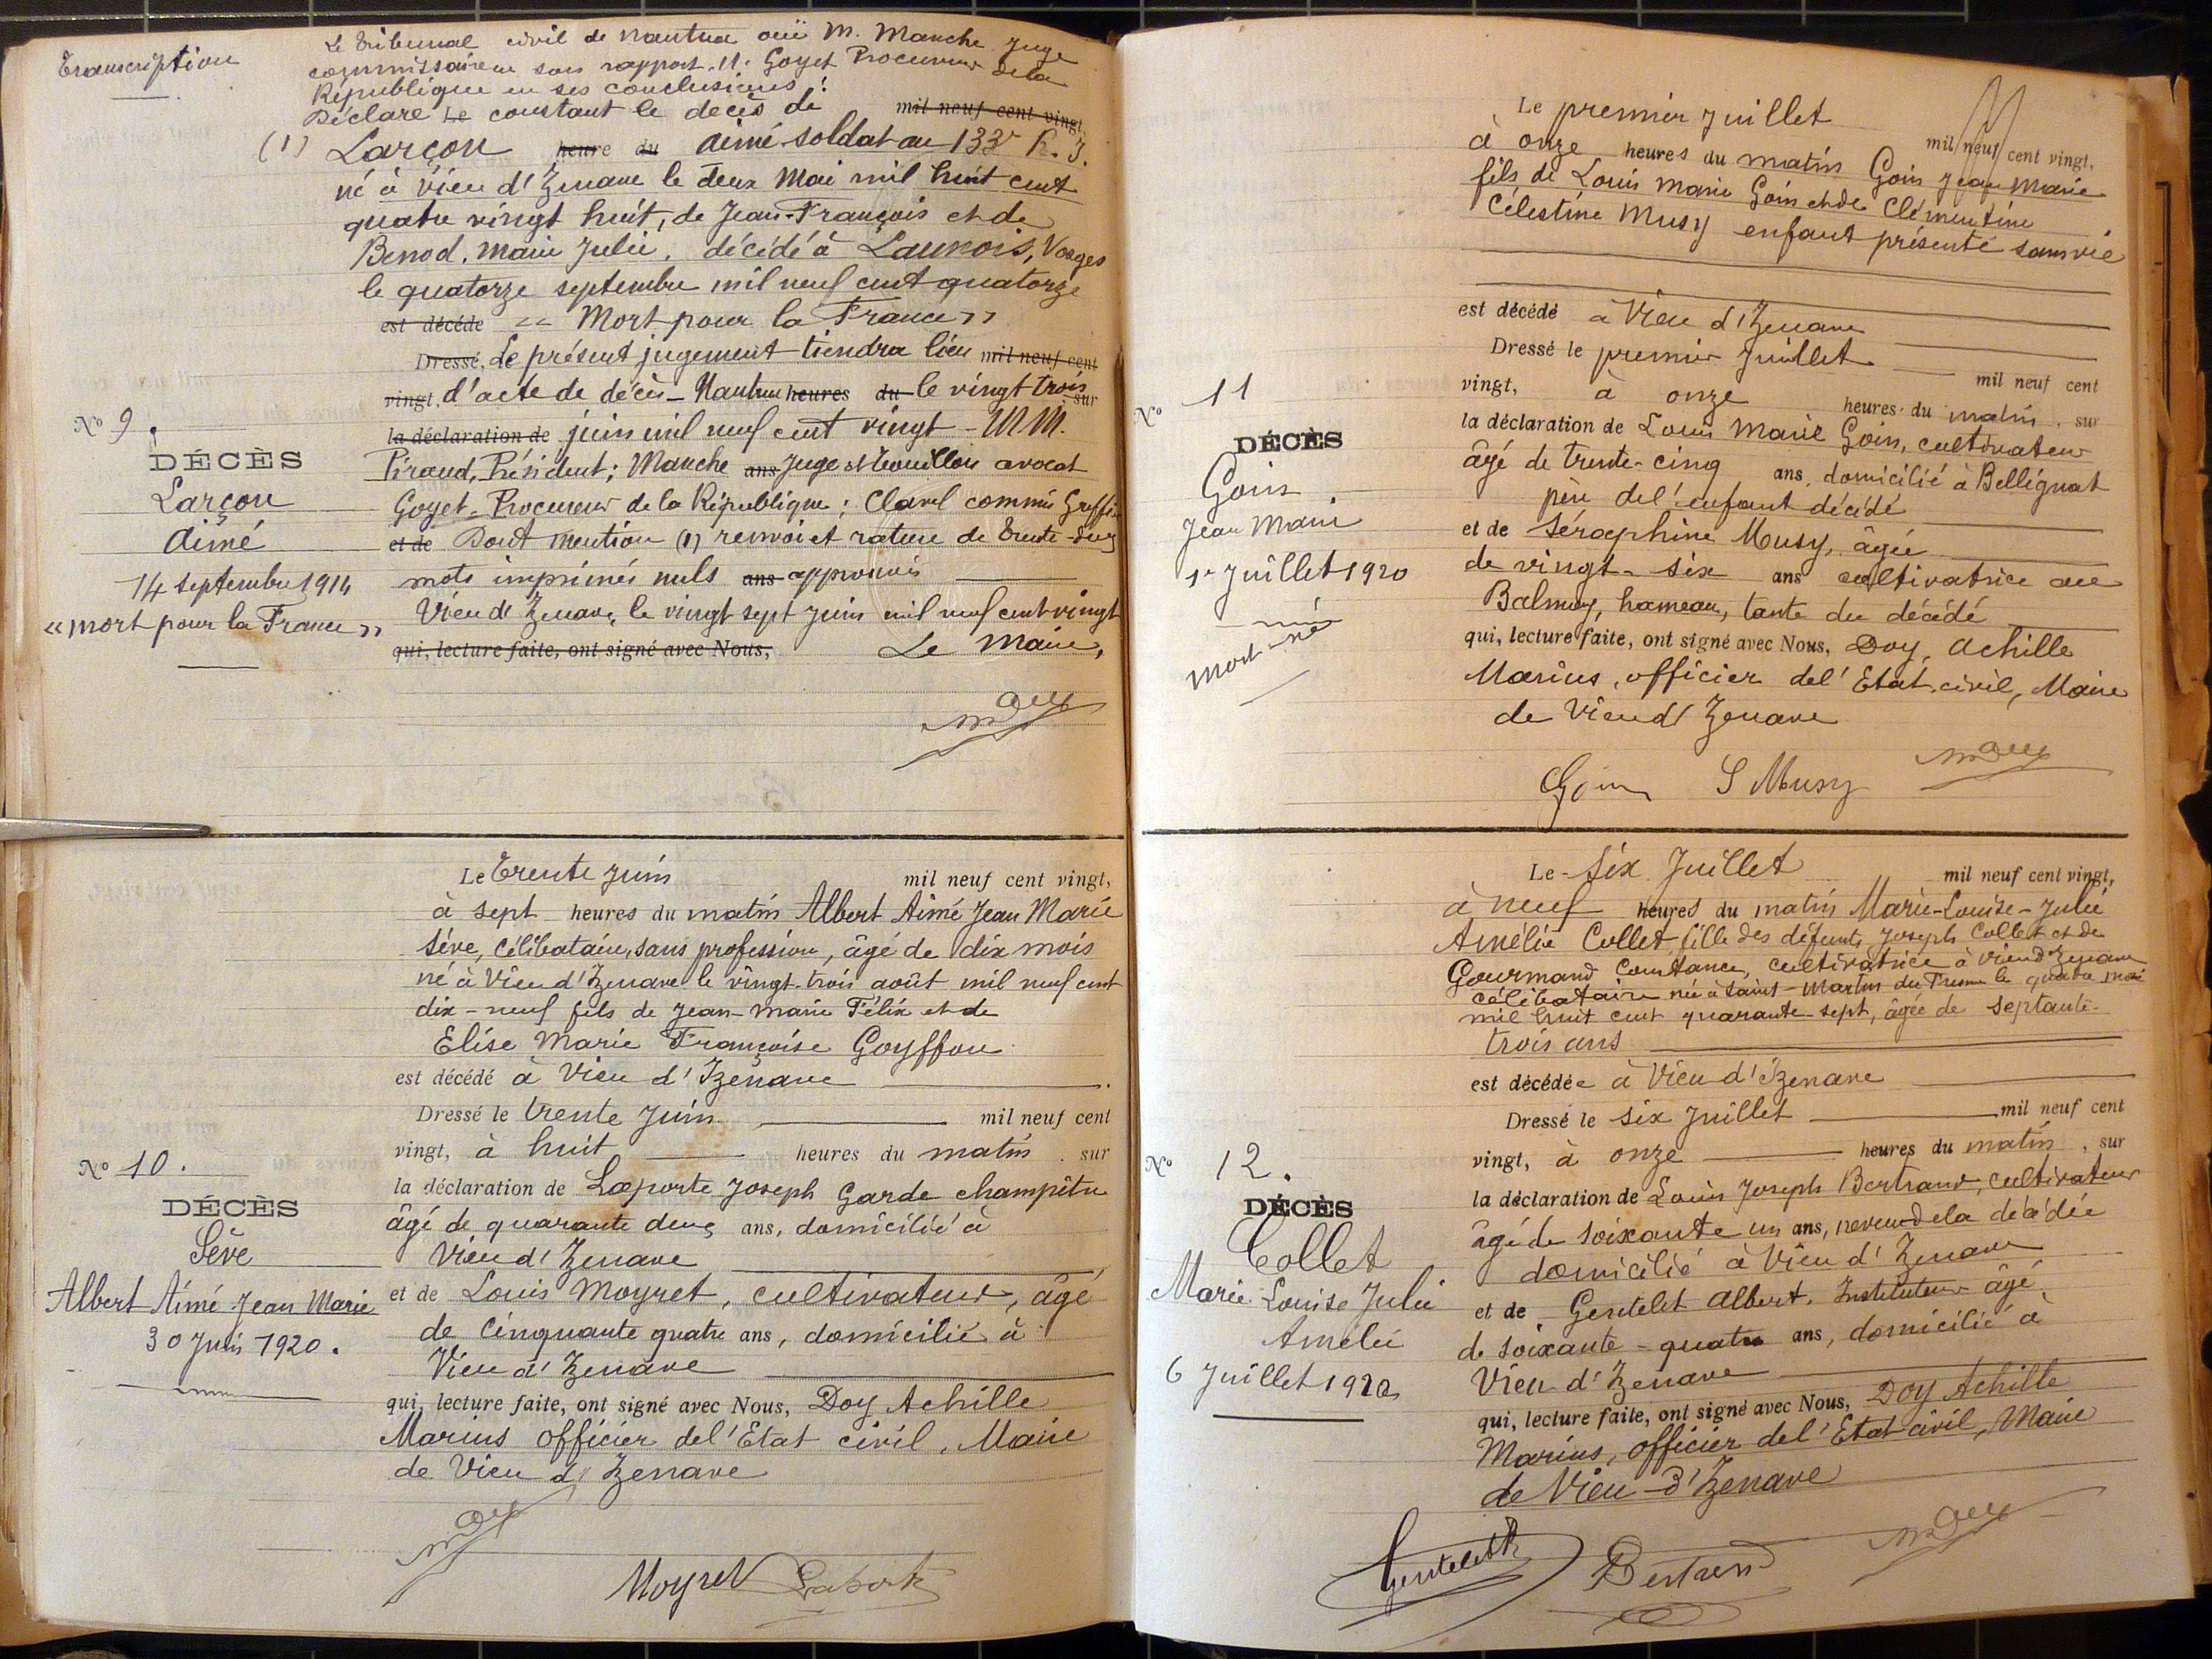 Transcription
Le Tribunal civil de Nantua ouï M. Manche Juge
commissaire en son rapport. M. Goyet Procureur de la
République en ses conclusions :
Déclare le constant le décès de mil neuf cent vingt,
(1) Larçon heure du Aimé soldat au 133e R. I.
né à Vieu d'Izenave le deux Mai mil huit cent
quatre vingt huit, de Jean-François et de
Benod. Marie Julie. décédé à Launois, Vosges
le quatorze septembre mil neuf cent quatorze
est décédé « Mort pour la France »
Dressé, Le présent jugement tiendra lieu mil neuf cent
vingt, d'acte de décès _ Nantua heures du le vingt trois sur
la déclaration de juin mil neuf cent vingt - M.M.
Piraud, Président ; Manche ans Juge et Touillon avocat
Goyet. Procureur de la République ; Clavel commis Greffier
et de Dont mention (1) renvoi et rature de trente-deux
mots imprimés nuls ans approuvés
Vieu d'Izenave, le vingt sept juin mil neuf cent vingt
qui, lecture faite, ont signé avec Nous, Le Maire,
MDoy
No 9.
DÉCÈS
Larçon
Aimé
14 septembre 1914
« mort pour la France »
Le Trente Juin mil neuf cent vingt,
à sept heures du matin Albert Aimé Jean Marie
Sève, célibataire, sans profession, âgé de dix mois
né à Vieu d'Izenave le vingt-trois août mil neuf cent
dix-neuf fils de Jean-Marie Félix et de
Elise Marie Françoise Goyffon
est décédé à Vieu d'Izenave
Dressé le trente Juin mil neuf cent
vingt, à huit heures du matin, sur
la déclaration de Laporte Joseph Garde champêtre
âgé de quarante deux ans, domicilié à
Vieu d'Izenave
et de Louis Moyret, cultivateur, âgé
de cinquante quatre ans, domicilié à
Vieu d'Izenave
qui, lecture faite, ont signé avec Nous, Doy Achille
Marius officier de l'Etat civil, Maire
de Vieu d'Izenave
MDoy
Moyret Laporte
No 10.
DÉCÈS
Sève
Albert Aimé Jean Marie
30 Juin 1920.
Le premier Juillet mil neuf cent vingt,
à onze heures du matin Goin Jean Marie
fils de Louis Marie Goin et de Clémentine
Célestine Musy enfant présenté sans vie
est décédé à Vieu d'Izenave
Dressé le premier Juillet mil neuf cent
vingt, à onze heures du matin, sur
la déclaration de Louis Marie Goin, cultivateur
âgé de trente-cinq ans, domicilié à Bellignat
père de l'enfant décédé
et de Séraphine Musy, âgée
de vingt-six ans cultivatrice au
Balmay, hameau, tante du décédé
qui, lecture faite, ont signé avec Nous, Doy, Achille
Marius, officier de l'Etat civil, Maire
de Vieu d'Izenave
Goin S Musy MDoy
No 11
DÉCÈS
Goin
Jean Marie
1er Juillet 1920
mort-né
Le Six Juillet mil neuf cent vingt,
à neuf heures du matin Marie-Louise-Julie
Amélie Collet fille des défunts Joseph Collet et de
Gourmand Constance, cultivatrice à Vieu d'Izenave
célibataire née à Saint-Martin du Fresne le quatre mai
mil huit cent quarante-sept, âgée de septante-
trois ans
est décédée à Vieu d'Izenave
Dressé le six Juillet mil neuf cent
vingt, à onze heures du matin, sur
la déclaration de Louis Joseph Bertrand, cultivateur
âgé de soixante un ans, neveu de la décédée
domicilié à Vieu d'Izenave
et de Gentelet Albert, Instituteur âgé
de soixante-quatre ans, domicilié à
Vieu d'Izenave
qui, lecture faite, ont signé avec Nous, Doy Achille
Marius, officier de l'Etat civil, Maire
de Vieu-d'Izenave
Gentelet Bertrand MDoy
No 12.
DÉCÈS
Collet
Marie Louise Julie
Amélie
6 Juillet 1920